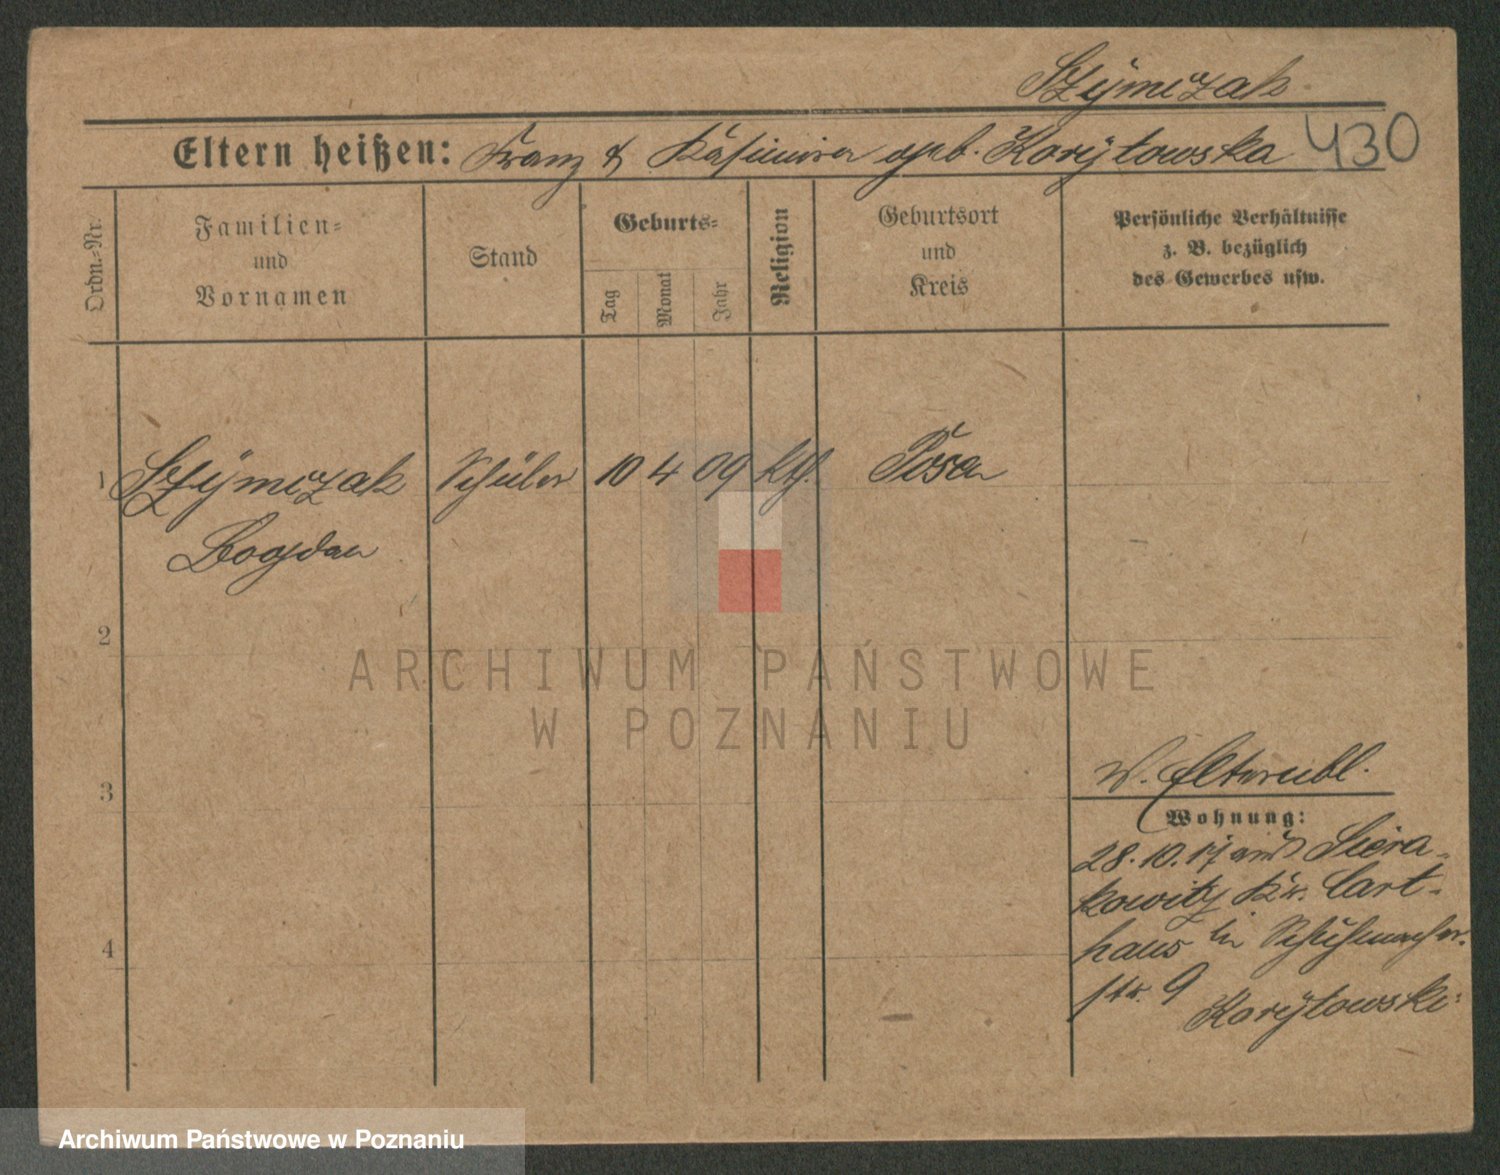 Szymczak
430
Eltern heißen: Franz & Kasimira geb. Korytowska
Ordn.-Nr.
Familien-
und
Vornamen
Stand
Geburts-
Tag
Monat
Jahr
Religion
Geburtsort
und
Kreis
Persönliche Verhältnisse
z. B. bezüglich
des Gewerbes usw.
1 Szymczak Schüler 10 4 09 kth. Posen
Bogdan
2
3
4
ARCHIWUM PAŃSTWOWE
W POZNANIU
Wohnung:
28.10.17 aus Siera-
kowitz Kr. Cart-
haus bei Schuhmacher-
str. 9
Korytowski
Archiwum Państwowe w Poznaniu